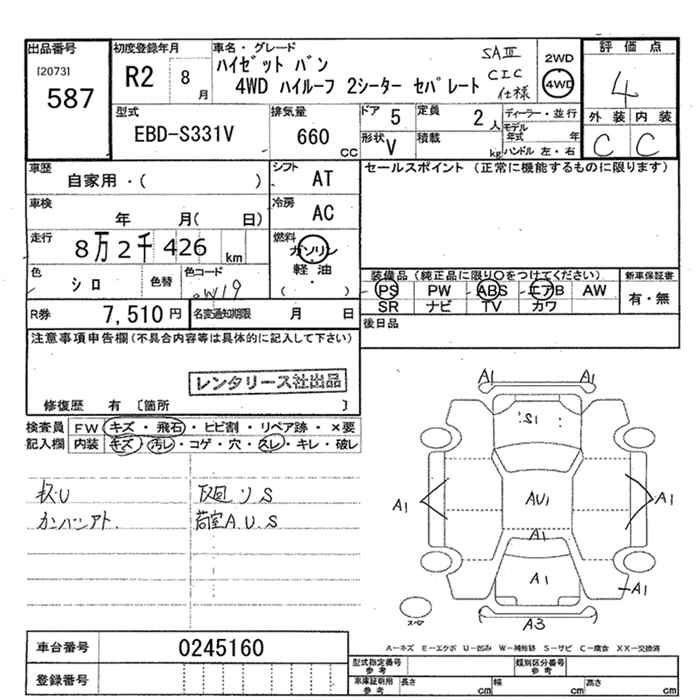 出品番号
[2073]
587
初度登録年月
R2 8月
車名・グレード
ハイゼット バン
4WD ハイルーフ 2シーター セパレート
SAⅢ
CIC
仕様
2WD
4WD
評価点
4
外装 内装
C C
型式
EBD-S331V
排気量
660 CC
ドア 5
定員 2人
形状 V
積載 kg
ディーラー・並行
モデル年式 年
ハンドル 左・右
車歴
自家用・( )
シフト AT
車検
年 月( 日)
冷房 AC
走行
8万2千426 km
燃料
ガソリン・軽油
( ・ )
色 シロ
色替
色コード W19
R券 7,510円
名変通知期限 月 日
セールスポイント (正常に機能するものに限ります)
装備品 (純正品に限り○をつけてください)
PS PW ABS エアB AW
SR ナビ TV カワ
新車保証書
有・無
後日品
注意事項申告欄(不具合内容等は具体的に記入して下さい)
レンタリース社出品
修復歴 有 [箇所 ]
検査員記入欄
FW キズ・飛石・ヒビ割・リペア跡・×要
内装 キズ・汚レ・コゲ・穴・スレ・キレ・破レ
カンバンアト.
荷室A.U.S
A1 A1
A1 A1
AU1
A1
A1
A1
A3
スペア
A-キズ E-エクボ U-凹み W-補修跡 S-サビ C-腐食 XX-交換済
車台番号 0245160
登録番号
型式指定番号 参考
類別区分番号 参考
車庫証明用 参考
長さ cm 幅 cm 高さ cm